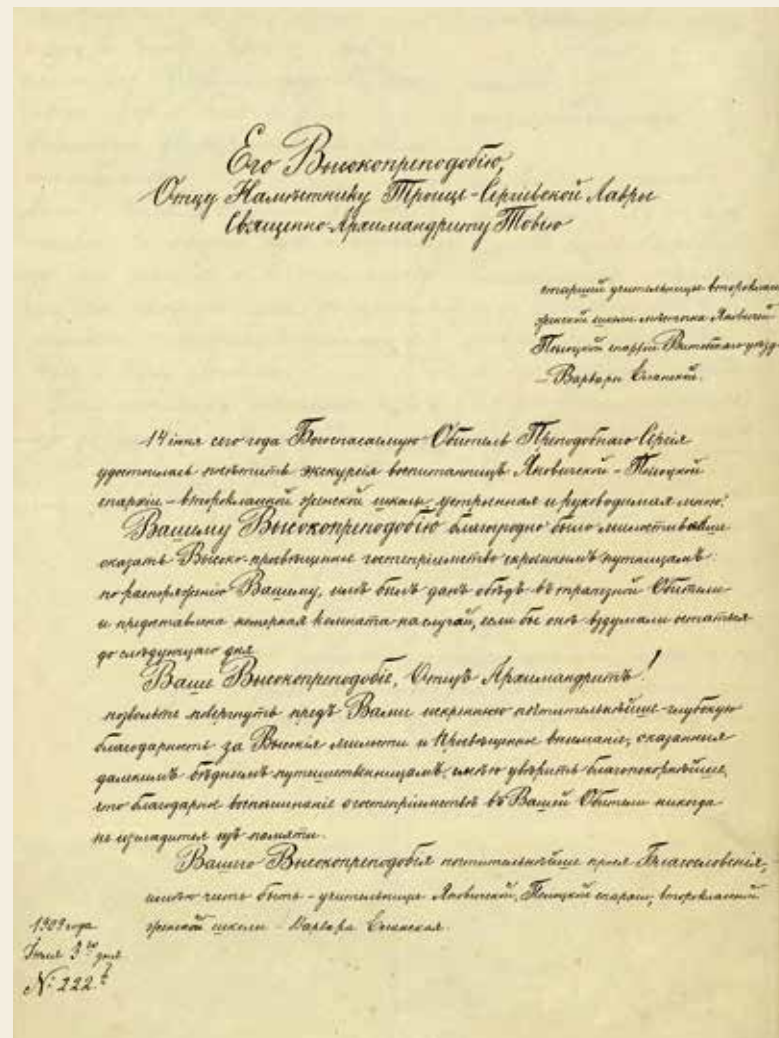 Его Высокопреподобію,
Отцу Намѣстнику Троице-Сергіевской Лавры
Священно-Архимандриту Товію
старшей учительницы второклас
женской школы мѣстечка Яновичей
Полоцкой епархіи Витебскаго уѣзд
– Варвары
14 іюня сего года Богоспасаемую Обитель Преподобнаго Сергія
удостоилась посѣтить экскурсія воспитанницъ Яновичской – Полоцкой
епархіи – второклассной женской школы, устроенная и руководимая мною.
Вашему Высокопреподобію благоугодно было милостивѣйше
оказать Высоко-просвѣщенное гостепріимство скромнымъ путницамъ:
по распоряженію Вашему, имъ былъ данъ обѣдъ въ трапезной Обители
и предоставлена номерная комната на случай, если бы онѣ вздумали остаться
до слѣдующаго дня.
Ваше Высокопреподобіе, Отецъ Архимандритъ!
позвольте повергнуть предъ Вами искреннюю почтительнѣйше-глубокую
благодарность за Высокія милости и Просвѣщенное вниманіе, оказанныя
далекимъ бѣднымъ путешественницамъ, смѣю увѣрить благопокорнѣйше,
что благодарное воспоминаніе о гостепріимствѣ въ Вашей Обители никогда
не изгладится изъ памяти.
Вашего Высокопреподобія почтительнѣйше прося Благословенія,
имѣю честь быть – учительница Яновичской, Полоцкой епархіи, второклассной
женской школы – Варвара
1909 года
3го дня
№ 222.